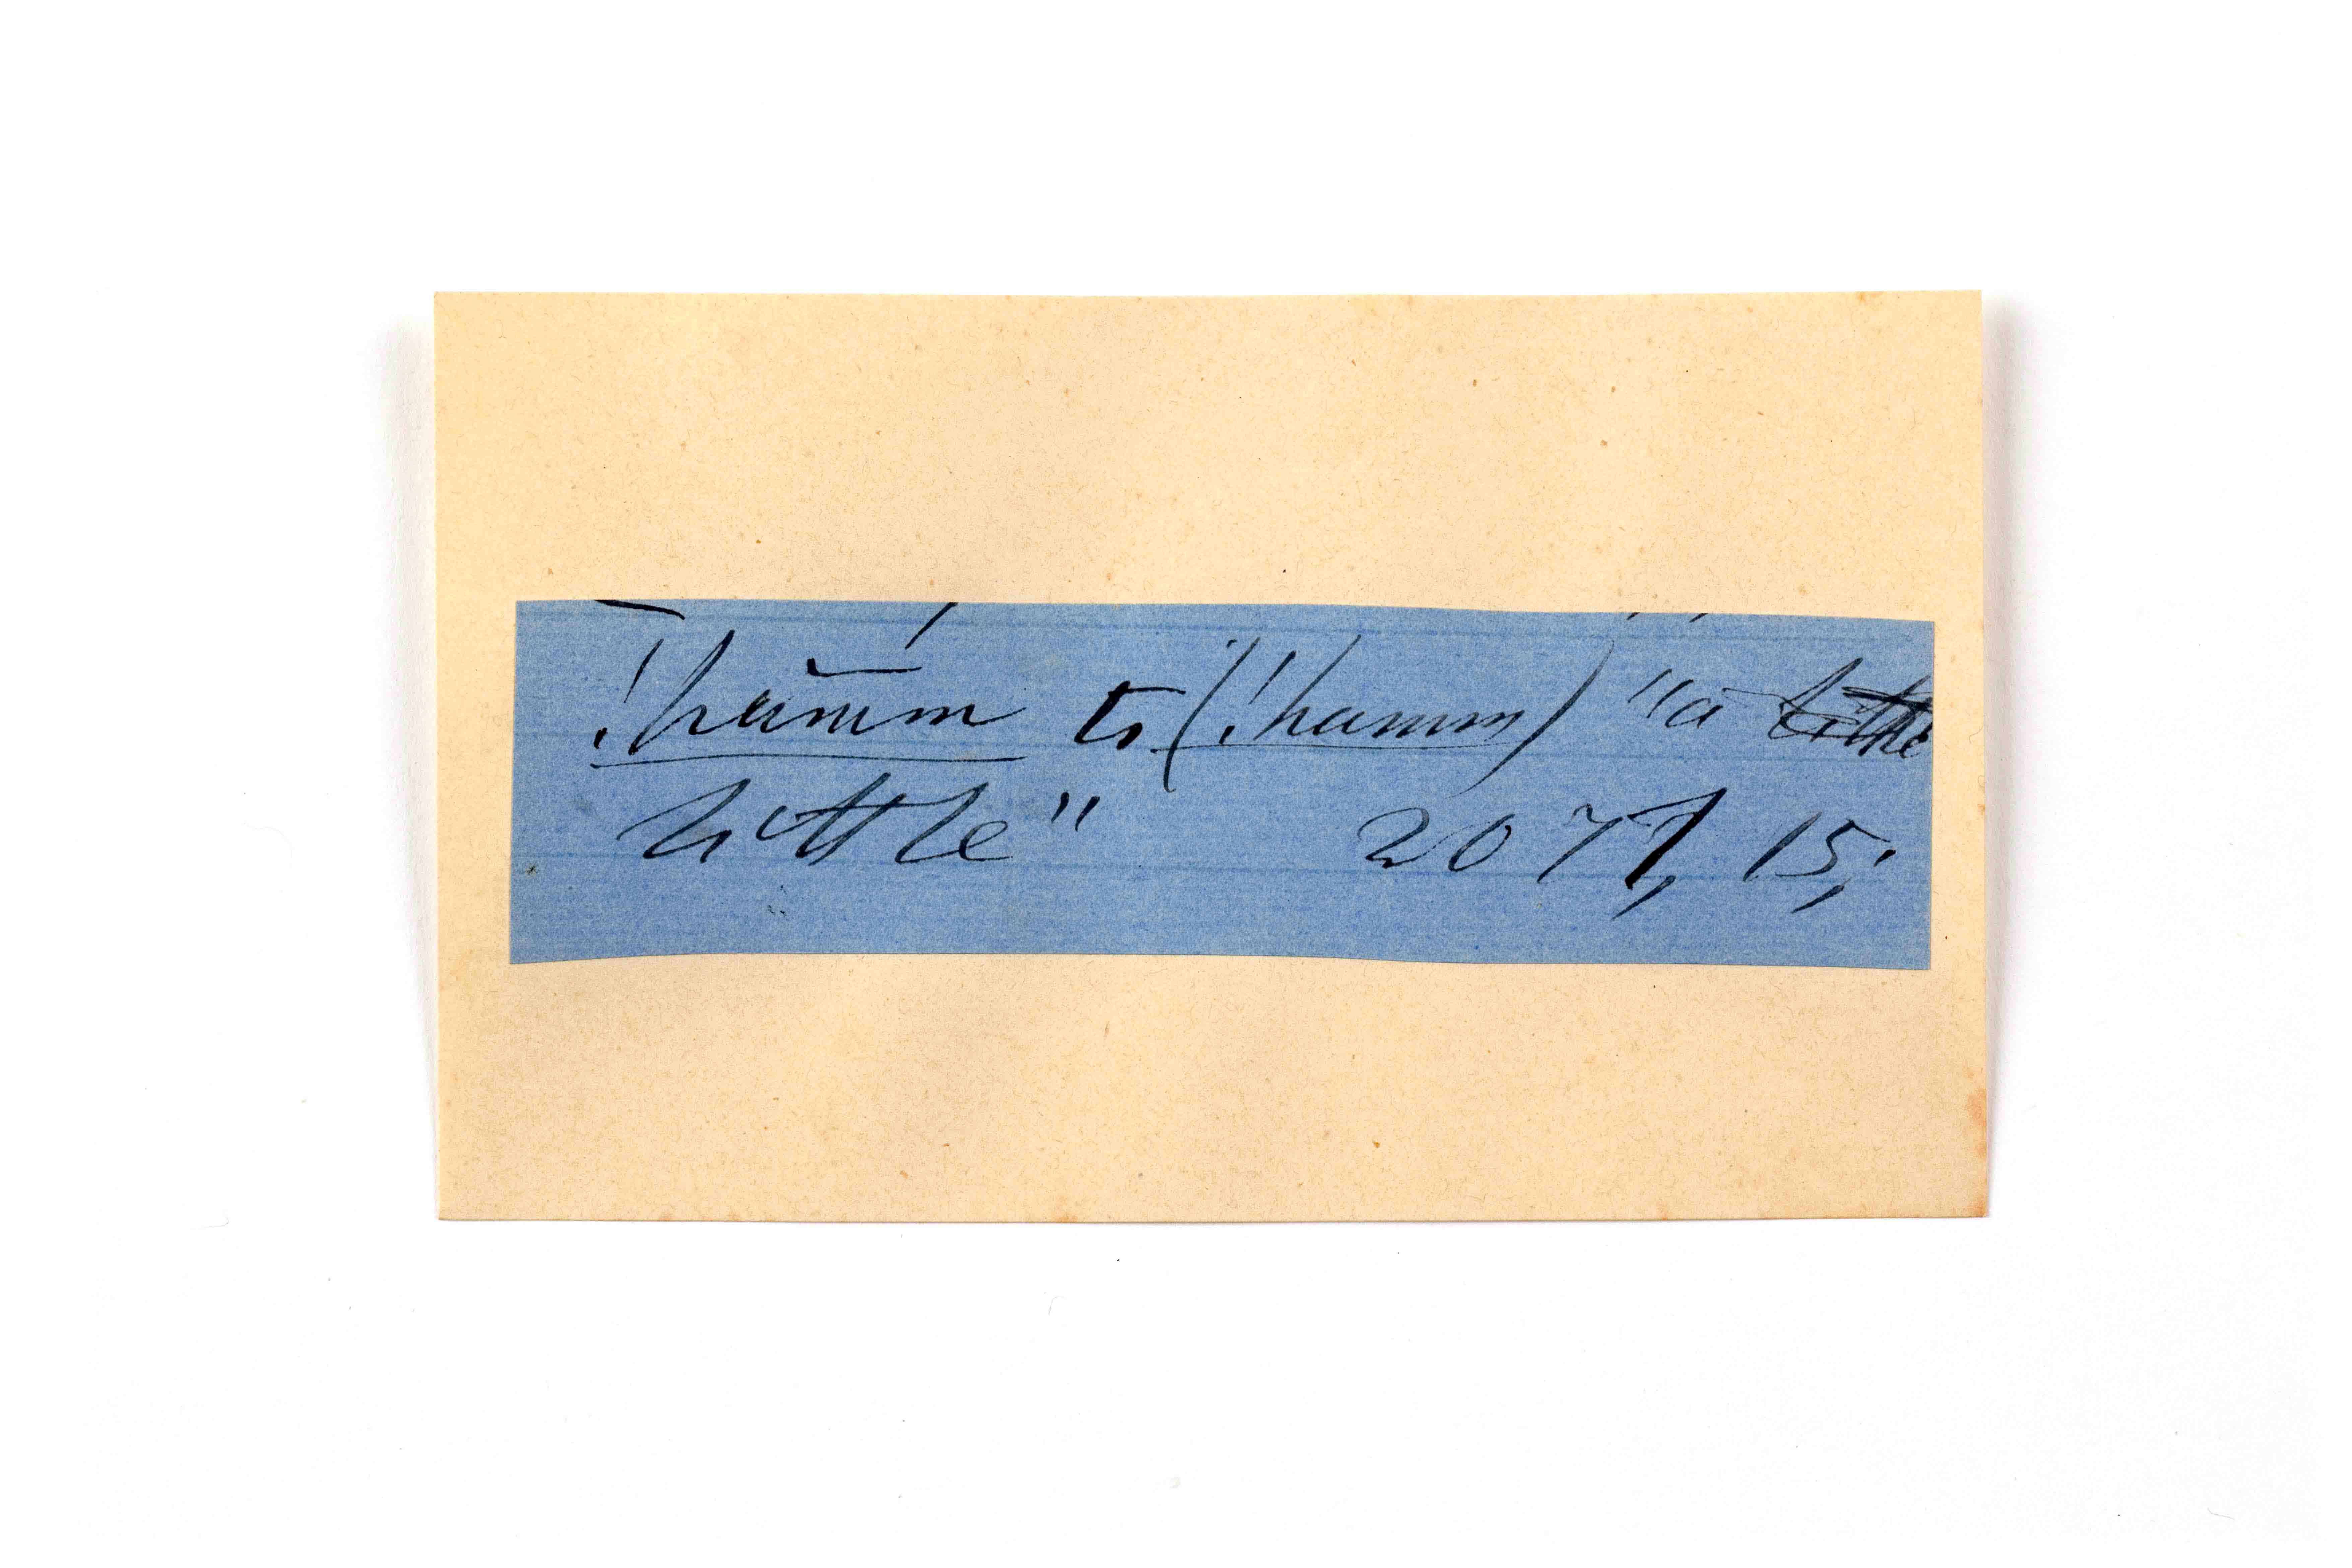 !hămm̄ to (!hamm) "a little
little" 2077, 15;